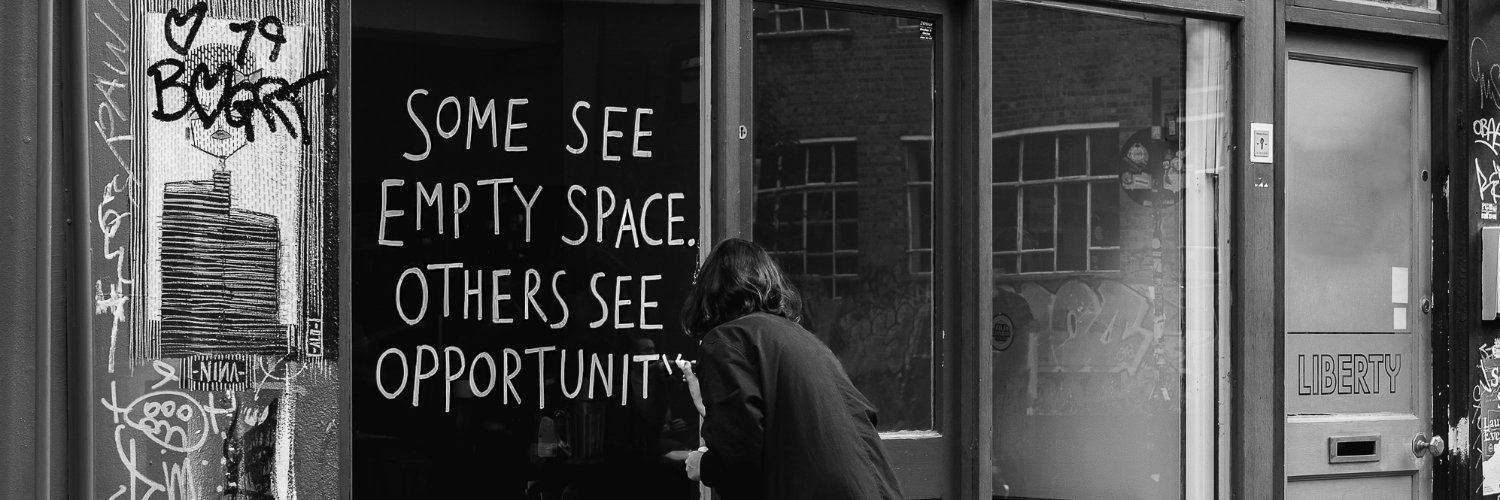 79
BOGART
SOME SEE
EMPTY SPACE.
OTHERS SEE
OPPORTUNIT
NINA
LIBERTY